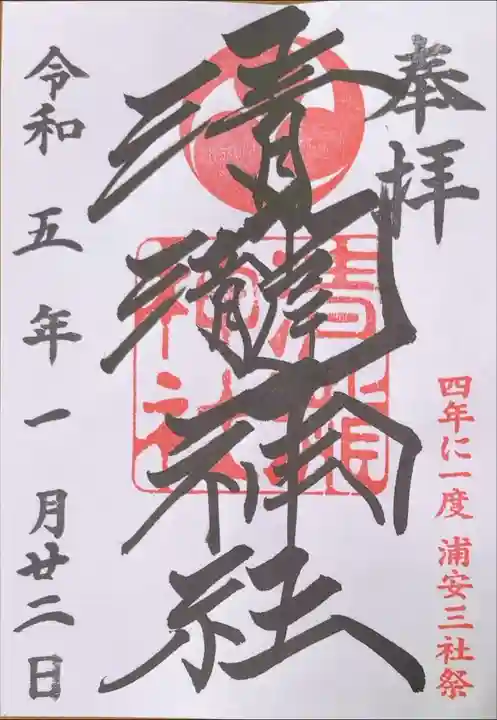 奉拝
四年に一度 浦安三社祭
清瀧神社
清瀧神社
令和五年一月廿二日